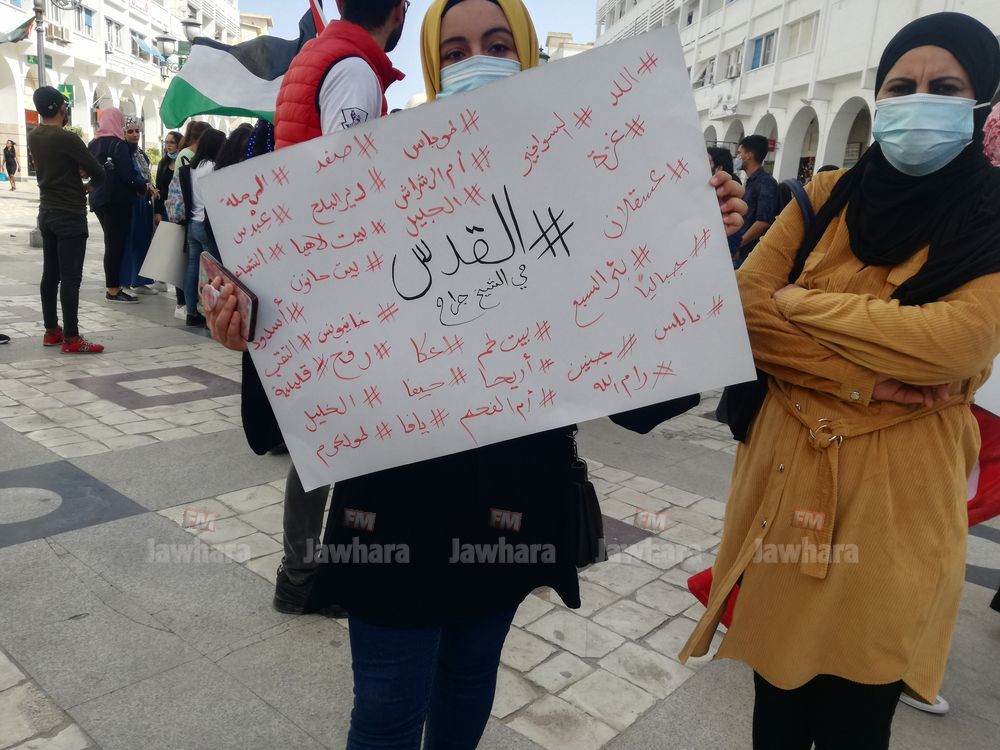 #صفد
#طوباس
#اللد
#أم الرشراش
#غزة
#دير البلح
#الجليل
#عسقلان
#بيت لاهيا
#القدس
في الشيخ جراح
#بيت حانون
#بئر السبع
#خانيونس
#أسدود
#النقب
#رفح
#عكا
#بيت لحم
#نابلس
#قلقيلية
#أريحا
#جنين
#حيفا
#الخليل
#أم الفحم
#رام الله
#يافا
#طولكرم
FM
Jawhara
FM
Jawhara
FM
Jawhara
FM
Jawhara
FM
Jawhara